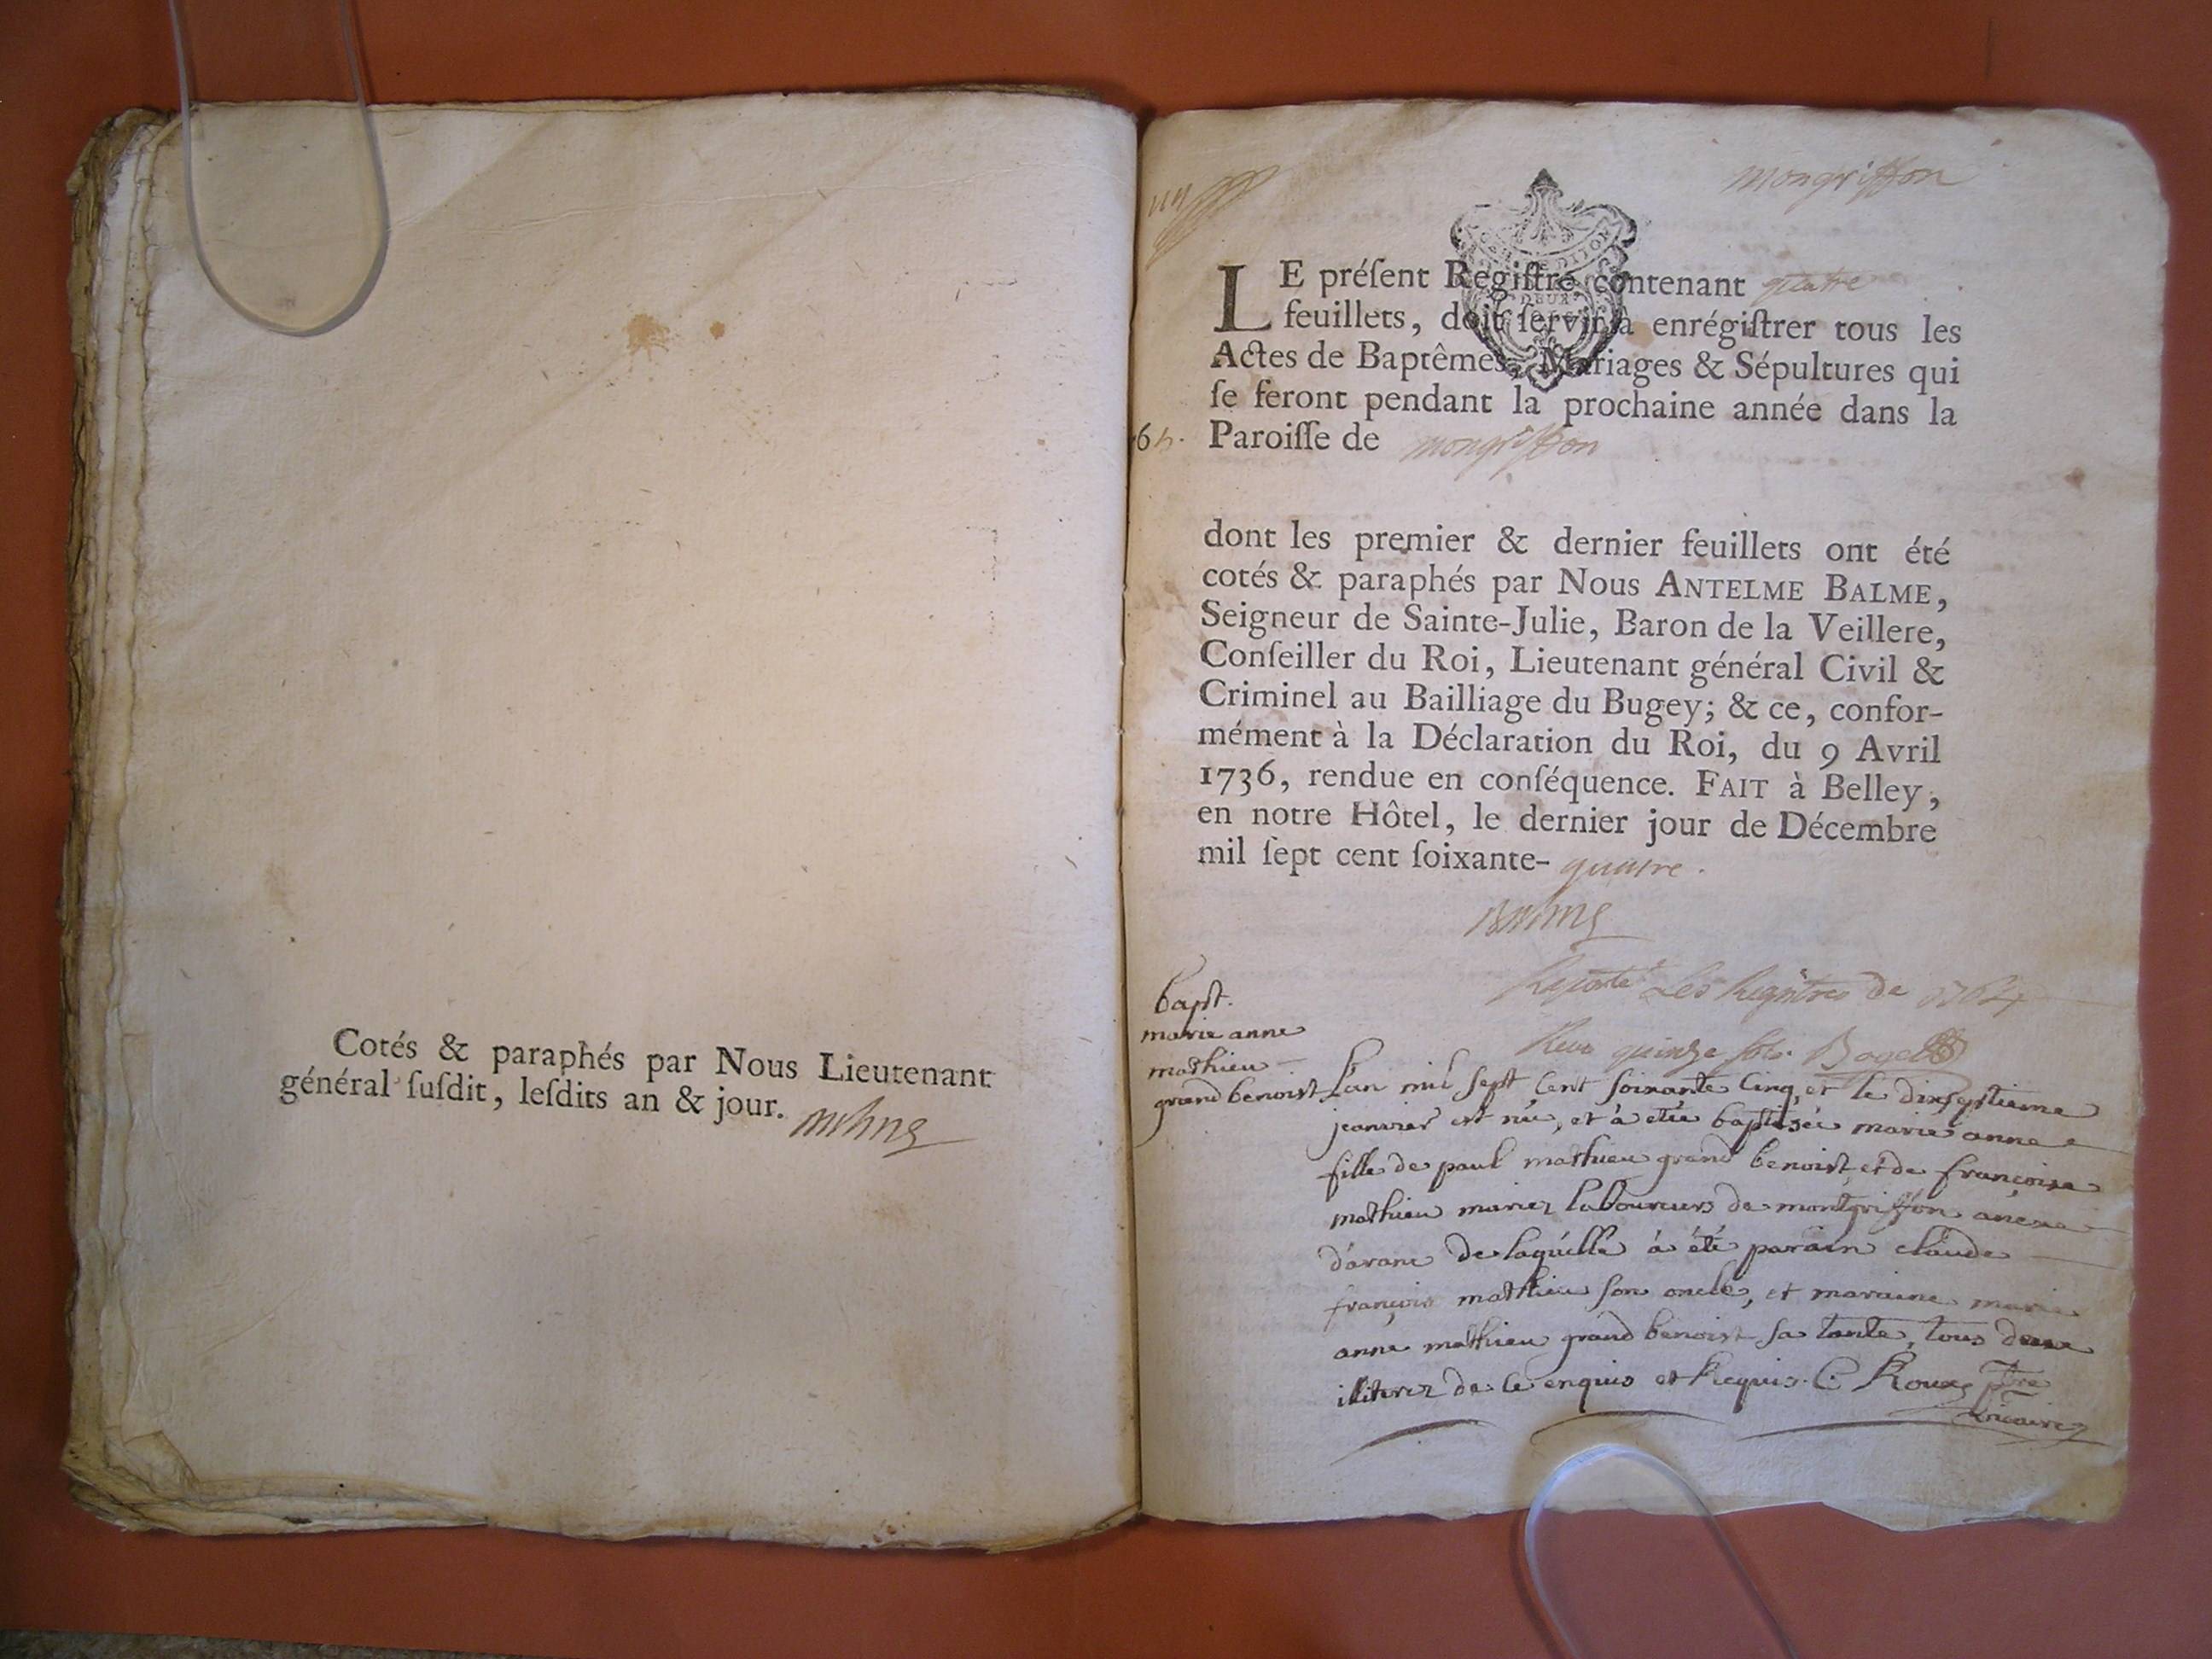 Cotés & paraphés par Nous Lieutenant
général ſuſdit, leſdits an & jour.
mongriffon
LE préſent Regiſtre contenant quatre
feuillets, doit ſervir à enrégiſtrer tous les
Actes de Baptêmes, Mariages & Sépultures qui
ſe feront pendant la prochaine année dans la
Paroiſſe de mongriffon
dont les premier & dernier feuillets ont été
cotés & paraphés par Nous ANTELME BALME,
Seigneur de Sainte-Julie, Baron de la Veillere,
Conſeiller du Roi, Lieutenant général Civil &
Criminel au Bailliage du Bugey; & ce, confor-
mément à la Déclaration du Roi, du 9 Avril
1736, rendue en conſéquence. FAIT à Belley,
en notre Hôtel, le dernier jour de Décembre
mil ſept cent ſoixante- quatre.
Balme
Raporté Les Registres de 1764
Receu quinze sols.
bapt.
marie anne
mathieu
grand benoist
L'an mil sept cent soixante cinq, et le dixseptieme
jeanvier est née, et à etée baptisée marie anne
fille de paul mathieu grand benoist, et de françoise
mathieu mariez laboureurs de montgriffon anexe
d'aranc de laquelle à été parain claude
françois mathieu son oncle, et maraine marie
anne mathieu grand benoist sa tante, tous deux
illiterez de ce enquis et Requis. C. Roux ptre
vicaire